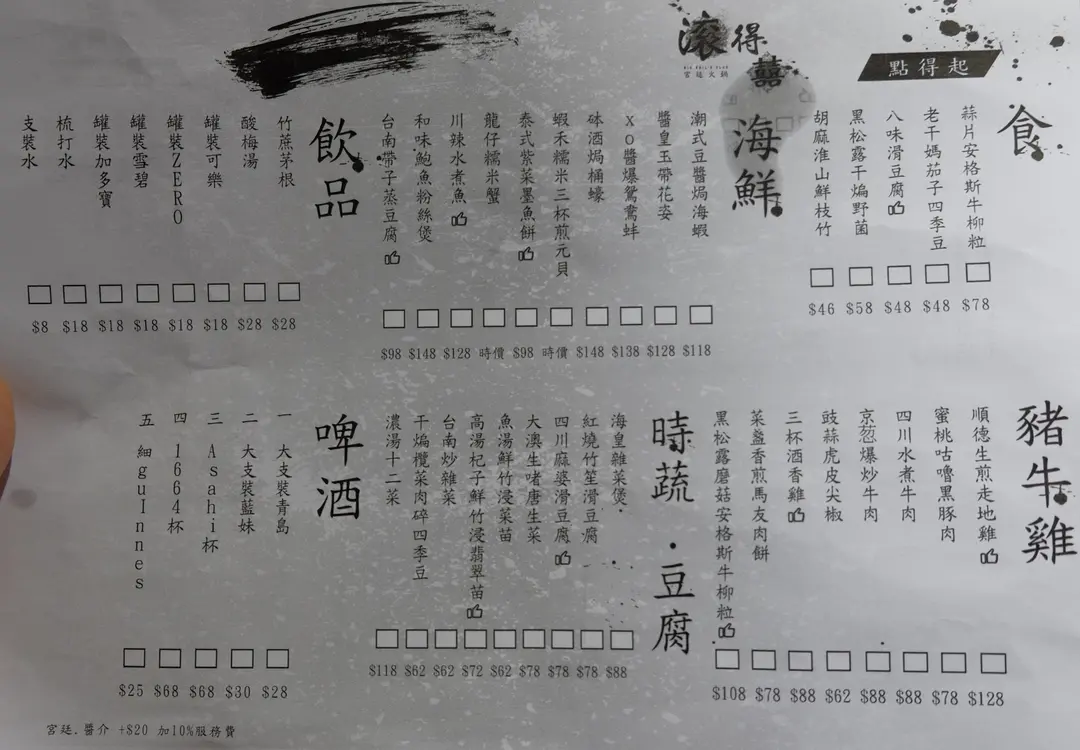 滾得囍
宮廷火鍋
點得起
食
蒜片安格斯牛柳粒 $78
老干媽茄子四季豆 $48
八味滑豆腐 $48
黑松露干煸野菌 $58
胡麻淮山鮮枝竹 $46
海鮮
潮式豆醬焗海蝦 $118
醬皇玉帶花姿 $128
XO醬爆鴛鴦蚌 $138
砵酒焗桶蠔 $148
蝦禾糯米三杯煎元貝 時價
泰式紫菜墨魚餅 $98
龍仔糯米蟹 時價
川辣水煮魚 $128
和味鮑魚粉絲煲 $148
台南帶子蒸豆腐 $98
飲品
竹蔗茅根 $28
酸梅湯 $28
罐裝可樂 $18
罐裝ZERO $18
罐裝雪碧 $18
罐裝加多寶 $18
梳打水 $18
支裝水 $8
豬牛雞
順德生煎走地雞 $128
蜜桃咕嚕黑豚肉 $78
四川水煮牛肉 $88
京葱爆炒牛肉 $88
豉蒜虎皮尖椒 $62
三杯酒香雞 $88
菜盞香煎馬友肉餅 $78
黑松露磨菇安格斯牛柳粒 $108
時蔬·豆腐
海皇雜菜煲 $88
紅燒竹笙滑豆腐 $78
四川麻婆滑豆腐 $78
大澳生啫唐生菜 $78
魚湯鮮竹浸菜苗 $62
高湯杞子鮮竹浸翡翠苗 $72
台南炒雜菜 $62
干煸欖菜肉碎四季豆 $62
濃湯十二菜 $118
啤酒
一 大支裝青島 $28
二 大支裝藍妹 $30
三 Asahi杯 $68
四 1664杯 $68
五 細guInnes $25
宮廷.醬介 +$20 加10%服務費